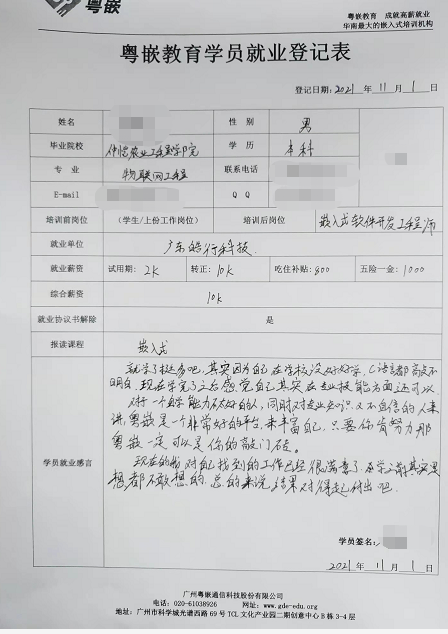 粤嵌
粤嵌教育 成就高薪就业
华南最大的嵌入式培训机构
粤嵌教育学员就业登记表
登记日期：2021 年 11 月 1 日
姓名 性 别 男
毕业院校 仲恺农业工程学院 学 历 本科
专 业 物联网工程 联系电话
E-mail Q Q
培训前岗位 （学生/上份工作岗位） 培训后岗位 嵌入式软件开发工程师
就业单位 广东皓行科技
就业薪资 试用期：2K 转正：10k 吃住补贴：800 五险一金：1000
综合薪资 10k
就业协议书解除 是
报读课程 嵌入式
学员就业感言
就学了挺多吧，其实因为自己在学校没好好学，C语言都搞皮不
明白，现在学完了之后感觉自己其实在专业技能方面还可以
对于一个自学能力不太好的人，同时对专业知识又不自信的人来
讲，粤嵌是一个非常好的平台，来丰富自己，只要你肯努力那
粤嵌一定可以是你的敲门砖。
现在的我对自己找到的工作已经很满意了，在学之前其实是
想都不敢想的，总的来说结果对得起付出吧
学员签名：
2021 年 11 月 1 日
广州粤嵌通信科技股份有限公司
电话：020-61038926 网址：www.gde-edu.org
地址：广州市科学城光谱西路 69 号 TCL 文化产业园二期创意中心 B 栋 3-4 层